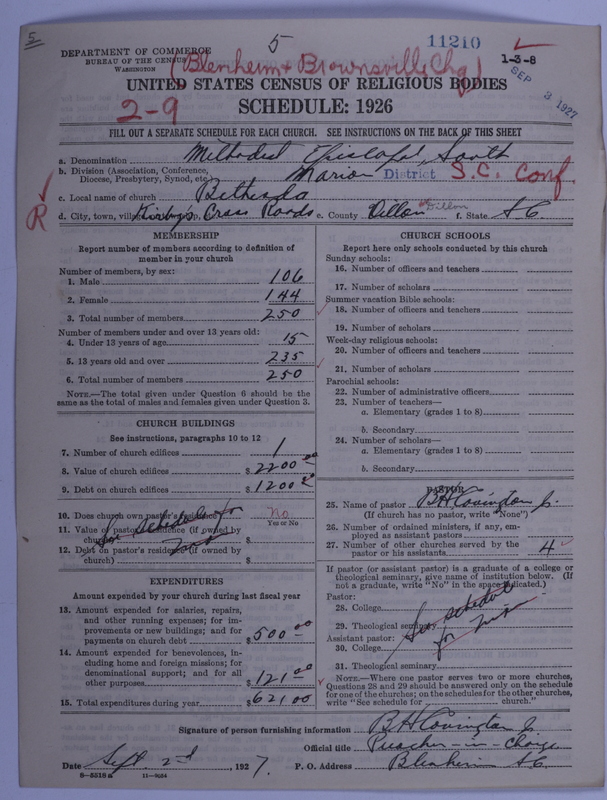 5
5
11210
1-3-8
DEPARTMENT OF COMMERCE
BUREAU OF THE CENSUS
WASHINGTON
(Blenheim & Brownsville Chg)
SEP 3 1927
UNITED STATES CENSUS OF RELIGIOUS BODIES
2-9
SCHEDULE: 1926
FILL OUT A SEPARATE SCHEDULE FOR EACH CHURCH. SEE INSTRUCTIONS ON THE BACK OF THIS SHEET
a. Denomination Methodist Episcopal, South
b. Division (Association, Conference, Diocese, Presbytery, Synod, etc.) Marion District S.C. Conf.
c. Local name of church Bethesda
R
d. City, town, Cross Roads e. County Dillon Dillon f. State S C
MEMBERSHIP
Report number of members according to definition of
member in your church
Number of members, by sex:
1. Male 106
2. Female 144
3. Total number of members 250
Number of members under and over 13 years old:
4. Under 13 years of age 15
5. 13 years old and over 235
6. Total number of members 250
NOTE.—The total given under Question 6 should be the
same as the total of males and females given under Question 3.
CHURCH BUILDINGS
See instructions, paragraphs 10 to 12
7. Number of church edifices 1
8. Value of church edifices $ 2200 00
9. Debt on church edifices $ 1200
10. Does church own pastor's residence? No
Yes or No
11. Value of pastor's residence (if owned by
church) $
See schedule for
12. Debt on pastor's residence (if owned by
church) $
EXPENDITURES
Amount expended by your church during last fiscal year
13. Amount expended for salaries, repairs,
and other running expenses; for im-
provements or new buildings; and for
payments on church debt $ 500 00
14. Amount expended for benevolences, in-
cluding home and foreign missions; for
denominational support; and for all
other purposes $ 121 00
15. Total expenditures during year $ 621 00
CHURCH SCHOOLS
Report here only schools conducted by this church
Sunday schools:
16. Number of officers and teachers
17. Number of scholars
Summer vacation Bible schools:
18. Number of officers and teachers
19. Number of scholars
Week-day religious schools:
20. Number of officers and teachers
21. Number of scholars
Parochial schools:
22. Number of administrative officers
23. Number of teachers—
a. Elementary (grades 1 to 8)
b. Secondary
24. Number of scholars—
a. Elementary (grades 1 to 8)
b. Secondary
PASTOR
25. Name of pastor B H Covington Jr.
(If church has no pastor, write "None")
26. Number of ordained ministers, if any, em-
ployed as assistant pastors
27. Number of other churches served by the
pastor or his assistants 4
If pastor (or assistant pastor) is a graduate of a college or
theological seminary, give name of institution below. (If
not a graduate, write "No" in the space indicated.)
Pastor:
28. College
29. Theological seminary
See schedule for
Assistant pastor:
30. College
31. Theological seminary
NOTE.—Where one pastor serves two or more churches,
Questions 28 and 29 should be answered only on the schedule
for one of the churches; on the schedules for the other churches,
write "See schedule for church."
Signature of person furnishing information B H Covington Jr.
Official title Preacher-in-Charge
Date Sept. 2d, 1927. P. O. Address Blenheim S C
8-5318a 11-9164